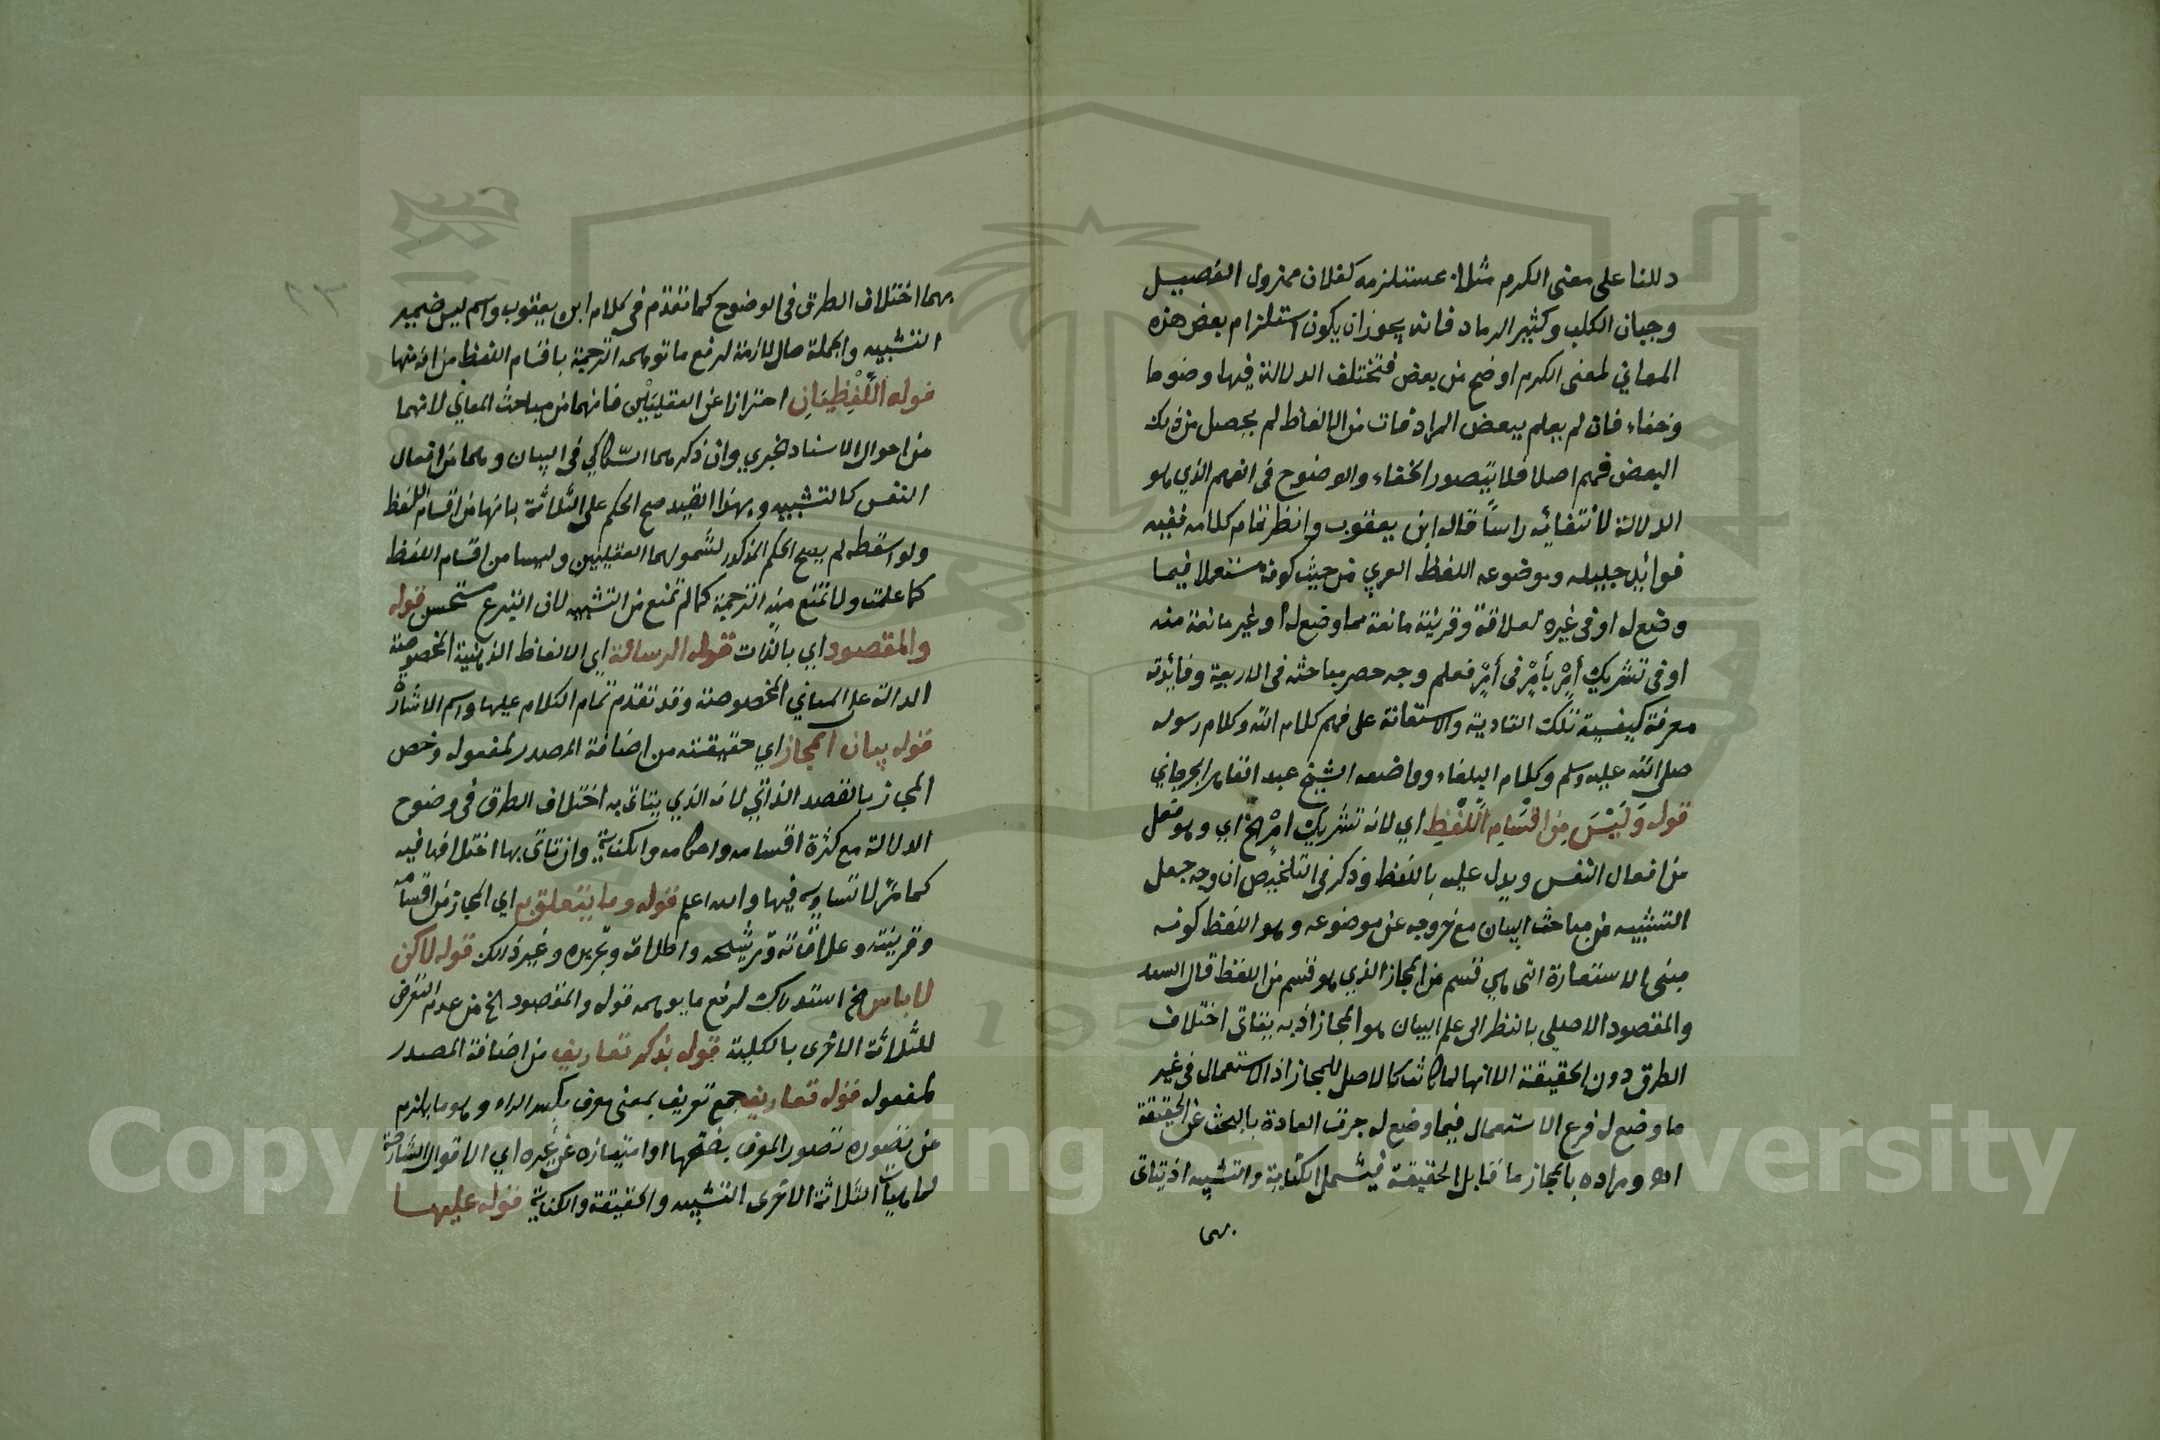 دللنا على معنى الكرم مثلا بمستلزمه كفلان مهزول الفصيل
وجبان الكلب وكثير الرماد فانه يجوز ان يكون استلزام بعض هذه
المعاني لمعنى الكرم اوضح من بعض فتختلف الدلالة فيها وضوحا
وخفاء فان لم يعلم ببعض المرادفات من الالفاظ لم يحصل من ذلك
البعض فهم اصلا فلا يتصور الخفاء والوضوح في الفهم الذي هو
الدلالة لانتفائه راسًا قاله ابن يعقوب وانظر تمام كلامه ففيه
فوائد جليله وموضوعه اللفظ العربي من حيث كونه مستعملا فيما
وضع له او في غيره لعلاقة وقرينة مانعة مما وضع له او غير مانعة منه
او في تشريك أمْر بأمْر في أمْر فعلم وجه حصر مباحثه في الاربعة وفائدته
معرفة كيفية تلك التادية والاستعانة على فهم كلام الله وكلام رسوله
صلى الله عليه وسلم وكلام البلغاء وواضعه الشيخ عبد القاهر الجرجاني
قوله وَلَيْسَ مِن اقْسَامِ اللَّفْظِ اي لانه تشريك امْر الخ اي وهو فعل
من افعال النفس ويدل عليه باللفظ وذكر في التلخيص ان وجه جعل
التشبيه من مباحث البيان مع خروجه عن موضوعه وهو اللفظ كونه
مبنى الاستعارة التى هي قسم من المجاز الذي هو قسم من اللفظ قال السعد
والمقصود الاصلي بالنظر الى علم البيان هو المجاز اذ به يتاتى اختلاف
الطرق دون الحقيقة الا انها لما كانت كالاصل للمجاز اذ الاستعمال في غير
ما وضع له فرع الاستعمال فيما وضع له جرت العادة بالبحث عن الحقيقة
اه ومراده بالمجاز ما قابل الحقيقة فيشمل الكناية والتشبيه اذ يتاتى
بهما
بهما اختلاف الطرق في الوضوح كما تقدم في كلام ابن يعقوب واسم ليس ضمير
التشبيه والجملة حال لازمة لرفع ما توهمه الترجمة باقسام اللفظ من انه منها
قوله اللَّفْظِيَّانِ احترازا عن العقليَّيْن فانهما من مباحث المعاني لانهما
من احوال الاسناد الخبري وان ذكرهما السّكاكي في البيان وهما من افعال
النفس كالتشبيه وبهذا القيد صح الحكم على الثَّلاثة بانها من اقسام اللفظ
ولو اسقطه لم يصح الحكم المذكور لشمولهما العقليين وليسا من اقسام اللفظ
كما علمت ولا تمنع منه الترجمة كما لم تمنع من التشبيه لان التبرع مستحسن قوله
والمقصود اي بالذات قوله الرسالة اي الالفاظ الذهنية المخصوصة
الدالة على المعاني المخصوصة وقد تقدم تمام الكلام عليها واسم الاشارة
قوله بيان المجاز اي حقيقته من اضافة المصدر لمفعوله وخص
المجاز بالقصد الذاتي لانه الذي يتاتى به اختلاف الطرق في وضوح
الدلالة مع كثرة اقسامه واحكامه والكناية وان تاتى بها اختلافها فيه
كما مرّ لا تساويه فيها والله اعلم قوله وما يتعلق به اي المجاز من اقسامه
وقرينته وعلاقاته وترشيحه واطلاقه وتجريده وغير ذالك قوله لاكن
لاباس الخ استدراك لرفع ما يوهمه قوله والمقصود الخ من عدم التعرض
للثَّلاثة الاخرى بالكلية قوله بذكر تعاريف من اضافة المصدر
لمفعوله قوله تعاريف جمع تعريف بمعنى معرف بكسر الراء وهو ما يلزم
من تصوره تصور المعرف بفتحها او امتيازه عن غيره اي الاقوال الشارحة
لماهيات الثَّلاثة الاخرى التشبيه والحقيقة والكناية قوله عليها